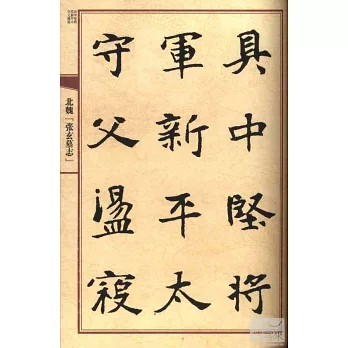 具中堅將
軍新平太
守父盪寇
北魏「张玄墓志」